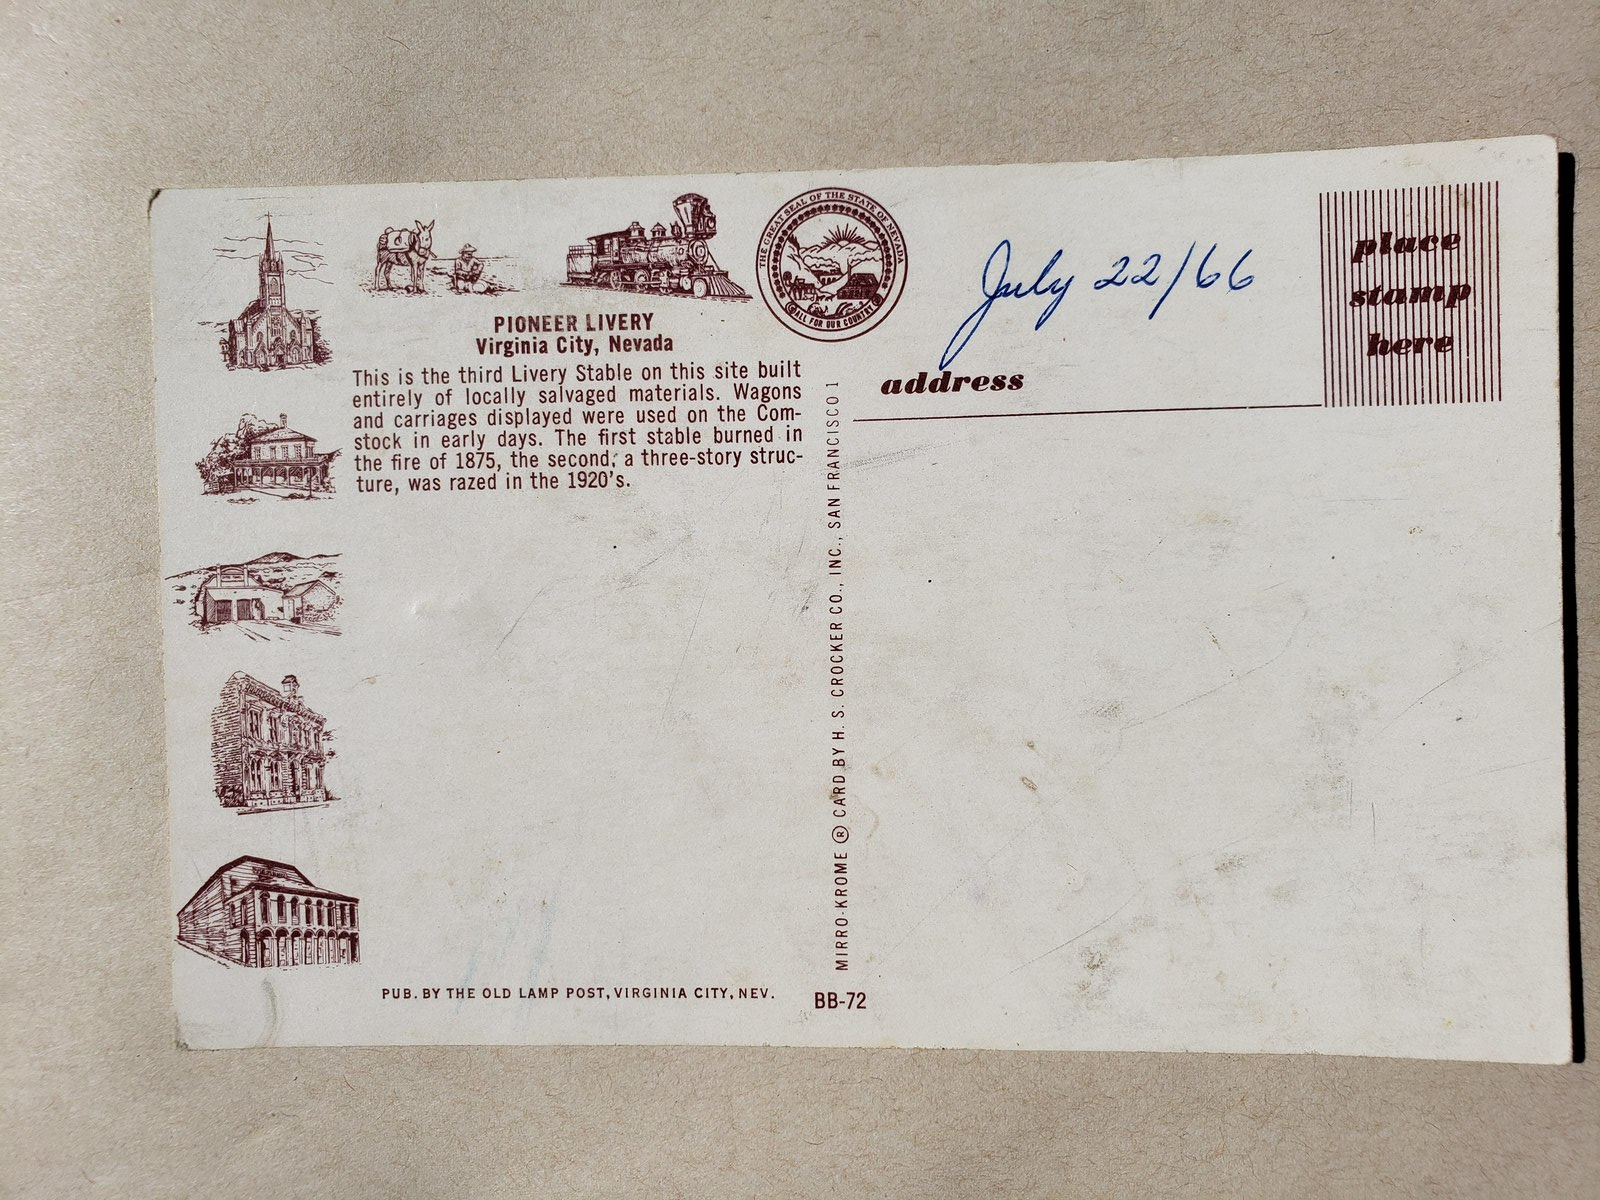 THE GREAT SEAL OF THE STATE OF NEVADA
ALL FOR OUR COUNTRY
PIONEER LIVERY
Virginia City, Nevada
This is the third Livery Stable on this site built
entirely of locally salvaged materials. Wagons
and carriages displayed were used on the Com-
stock in early days. The first stable burned in
the fire of 1875, the second, a three-story struc-
ture, was razed in the 1920's.
PUB. BY THE OLD LAMP POST, VIRGINIA CITY, NEV.
BB-72
MIRRO-KROME ® CARD BY H. S. CROCKER CO., INC., SAN FRANCISCO 1
July 22/66
address
place
stamp
here